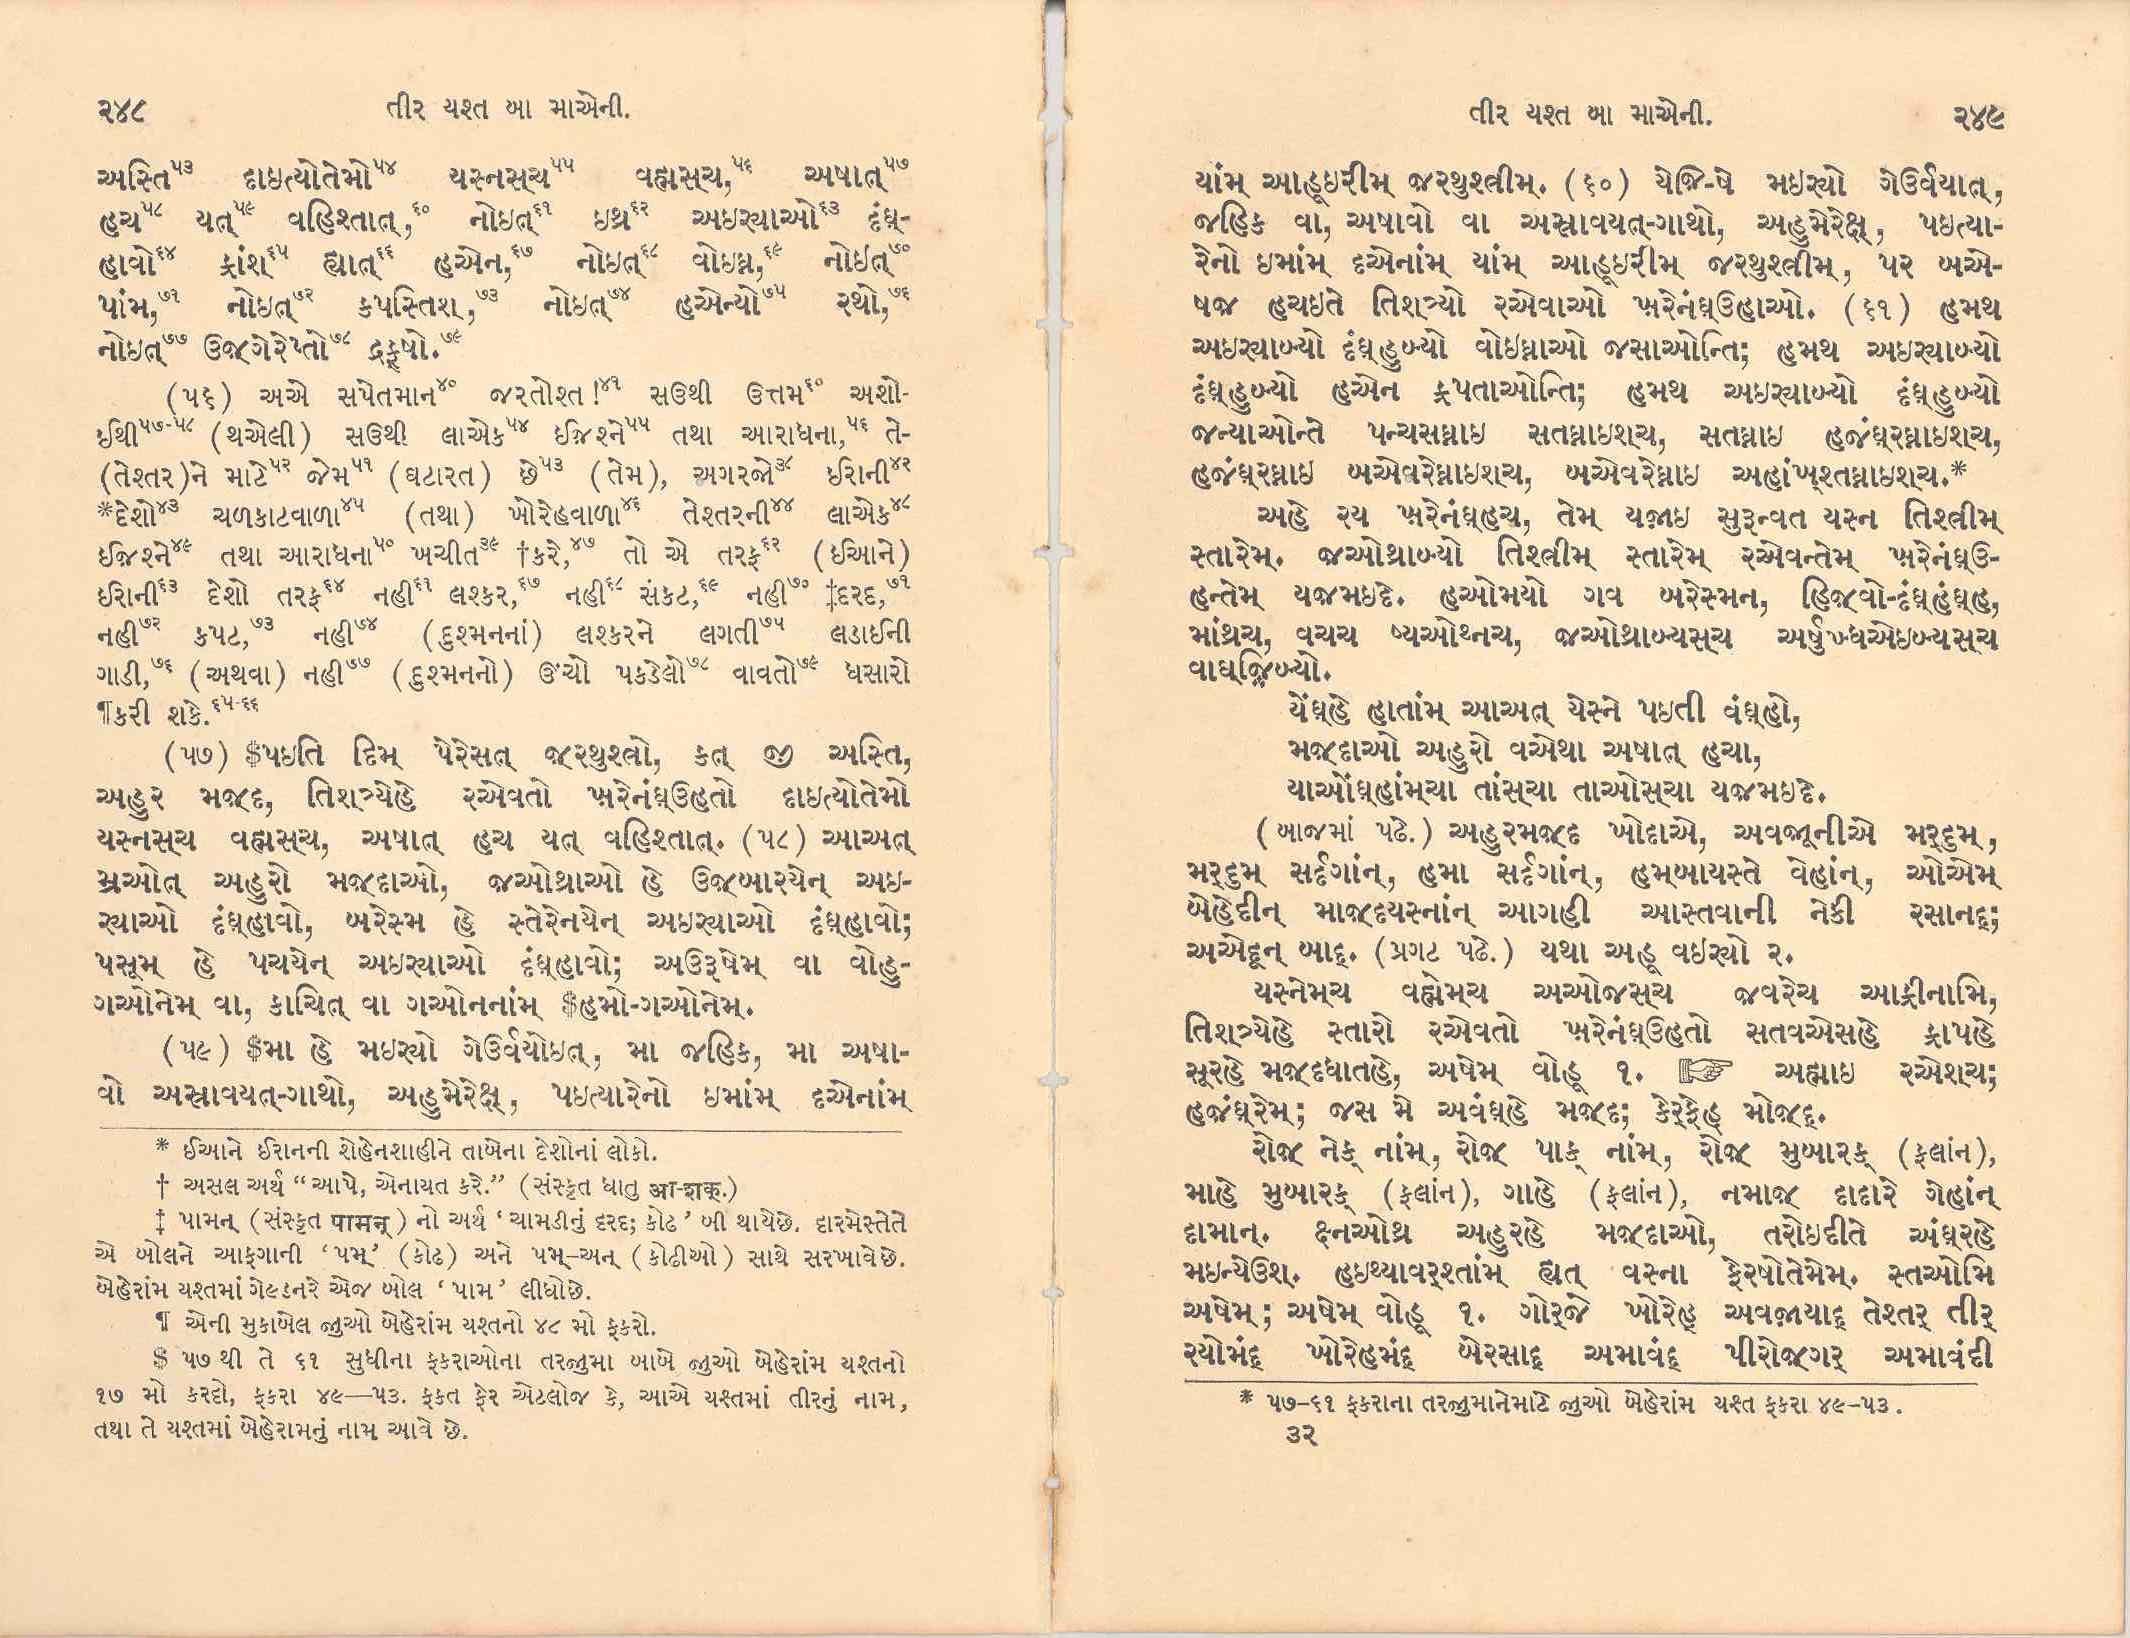 ૨૪૮ તીર યશ્ત બા માએની.
અસ્તિ૫૩ દાઇત્યોતેમો૫૪ યસ્નસ્ચ૫૫ વહ્મસ્ચ,૫૬ અષાત્૫૭
હચ૫૮ યત્૫૯ વહિશ્તાત્,૬૦ નોઇત્૬૧ ઇથ્ર૬૨ અઇર્યાઓ૬૩ દંઘ્-
હાવો૬૪ ફ્રાંશ્૬૫ હ્યાત્૬૬ હએન,૬૭ નોઇત્૬૮ વોઇઘ્ન,૬૯ નોઇત્૭૦
પાંમ,૭૧ નોઇત્૭૨ કપસ્તિશ,૭૩ નોઇત્૭૪ હએન્યો૭૫ રથો,૭૬
નોઇત્૭૭ ઉજ઼્ગેરેપ્તો૭૮ દ્રફ્ષો.૭૯
(૫૬) અએ સપેતમાન૪૦ જરતોશ્ત!૪૧ સઉથી ઉત્તમ૬૦ અશો-
ઈથી૫૭-૫૮ (થએલી) સઉથી લાએક૫૪ ઈજ઼શ્ને૫૫ તથા આરાધના,૫૬ તે-
(તેશ્તર)ને માટે૫૨ જેમ૫૧ (ઘટારત) છે૫૩ (તેમ), અગરજો૩૮ ઇરાની૪૨
*દેશો૪૩ ચળકાટવાળા૪૫ (તથા) ખોરેહવાળા૪૬ તેશ્તરની૪૪ લાએક૪૮
ઈજ઼શ્ને૪૯ તથા આરાધના૫૦ ખચીત૩૯ †કરે,૪૭ તો એ તરફ૬૨ (ઈઆને)
ઇરાની૬૩ દેશો તરફ૬૪ નહી૬૧ લશ્કર,૬૭ નહી૬૮ સંકટ,૬૯ નહી૭૦ ‡દરદ,૭૧
નહી૭૨ કપટ,૭૩ નહી૭૪ (દુશ્મનનાં) લશ્કરને લગતી૭૫ લડાઈની
ગાડી,૭૬ (અથવા) નહી૭૭ (દુશ્મનનો) ઊંચો પકડેલો૭૮ વાવતો૭૯ ધસારો
¶કરી શકે.૬૫-૬૬
(૫૭) $પઇતિ દિમ્ પેરેસત્ જ઼રથુશ્ત્રો, કત્ જી અસ્તિ,
અહુર મજ઼્દ, તિશ્ત્ર્યેહે રએવતો ખ઼રેનંઘ્ઉહતો દાઇત્યોતેમો
યસ્નસ્ચ વહ્મસ્ચ, અષાત્ હચ યત્ વહિશ્તાત્. (૫૮) આઅત્
મ્રઓત્ અહુરો મજ઼્દાઓ, જ઼ઓથ્રાઓ હે ઉજ઼્બારયેન્ અઇ-
ર્યાઓ દંઘ્હાવો, બરેસ્મ હે સ્તેરેનયેન્ અઇર્યાઓ દંઘ્હાવો;
પસૂમ્ હે પચયેન્ અઇર્યાઓ દંઘ્હાવો; અઉરૂષેમ્ વા વોહુ-
ગઓનેમ્ વા, કાચિત્ વા ગઓનનાંમ્ $હમો-ગઓનેમ્.
(૫૯) $મા હે મઇર્યો ગેઉર્વયોઇત્, મા જહિક, મા અષા-
વો અસ્રાવયત્-ગાથો, અહુમેરેક્ષ્, પઇત્યારેનો ઇમાંમ્ દએનાંમ્
* ઈઆને ઈરાનની શેહેનશાહીને તાબેના દેશોનાં લોકો.
† અસલ અર્થ "આપે, એનાયત કરે." (સંસ્કૃત ધાતુ आ-शक्.)
‡ પામન્ (સંસ્કૃત पामन्) નો અર્થ 'ચામડીનું દરદ; કોઢ' બી થાયેછે. દારમેસ્તેતે
એ બોલને આફગાની 'પમ્' (કોઢ) અને પમ્-અન્ (કોઢીઓ) સાથે સરખાવેછે.
બેહેરાંમ યશ્તમાં ગેલ્ડનરે એજ બોલ 'પામ' લીધોછે.
¶ એની મુકાબેલ જુઓ બેહેરાંમ યશ્તનો ૪૮ મો ફકરો.
$ ૫૭ થી તે ૬૧ સુધીના ફકરાઓના તરજુમા બાબે જુઓ બેહેરાંમ યશ્તનો
૧૭ મો કરદો, ફકરા ૪૯—૫૩. ફકત ફેર એટલોજ કે, આએ યશ્તમાં તીરનું નામ,
તથા તે યશ્તમાં બેહેરામનું નામ આવે છે.
તીર યશ્ત બા માએની. ૨૪૯
યાંમ્ આહૂઇરીમ્ જ઼રથુશ્ત્રીમ્. (૬૦) યેજ઼િ-ષે મઇર્યો ગેઉર્વયાત્,
જહિક વા, અષાવો વા અસ્રાવયત્-ગાથો, અહુમેરેક્ષ્, પઇત્યા-
રેનો ઇમાંમ્ દએનાંમ્ યાંમ્ આહૂઇરીમ્ જ઼રથુશ્ત્રીમ્, પર બએ-
ષજ઼ હચઇતે તિશ્ત્ર્યો રએવાઓ ખ઼રેનંઘ્ઉહાઓ. (૬૧) હમથ
અઇર્યાબ્યો દંઘ્હુબ્યો વોઇઘ્નાઓ જસાઓન્તિ; હમથ અઇર્યાબ્યો
દંઘ્હુબ્યો હએન ફ્રપતાઓન્તિ; હમથ અઇર્યાબ્યો દંઘ્હુબ્યો
જન્યાઓન્તે પન્ચસઘ્નાઇ સતઘ્નાઇશ્ચ, સતઘ્નાઇ હજ઼ંઘ્રઘ્નાઇશ્ચ,
હજ઼ંઘ્રઘ્નાઇ બએવરેઘ્નાઇશ્ચ, બએવરેઘ્નાઇ અહાંખ્શ્તઘ્નાઇશ્ચ.*
અહે રય ખ઼રેનંઘ્હચ, તેમ્ યજ઼ાઇ સુરૂન્વત યસ્ન તિશ્ત્રીમ્
સ્તારેમ્. જ઼ઓથ્રાબ્યો તિશ્ત્રીમ્ સ્તારેમ્ રએવન્તેમ્ ખ઼રેનંઘ્ઉ-
હન્તેમ્ યજ઼મઇદે. હઓમયો ગવ બરેસ્મન, હિજ઼્વો-દંઘ્હંઘ્હ,
માંથ્રચ, વચચ ષ્યઓથ્નચ, જ઼ઓથ્રાબ્યસ્ચ અર્ષુખ્ધએઇબ્યસ્ચ
વાઘ્જ઼િબ્યો.
યેંઘ્હે હાતાંમ્ આઅત્ યેસ્ને પઇતી વંઘ્હો,
મજ઼્દાઓ અહુરો વએથા અષાત્ હચા,
યાઓંઘ્હાંમ્ચા તાંસ્ચા તાઓસ્ચા યજ઼મઇદે.
(બાજમાં પઢે.) અહુરમજ઼્દ ખોદાએ, અવજ઼ૂનીએ મર્દુમ્,
મર્દુમ્ સર્દગાંન્, હમા સર્દગાંન્, હમ્બાયસ્તે વેહાંન્, ઓએમ્
બેહેદીન્ માજ઼્દયસ્નાંન્ આગહી આસ્તવાની નેકી રસાનદ્;
અએદૂન્ બાદ્. (પ્રગટ પઢે.) યથા અહૂ વઇર્યો ૨.
યસ્નેમ્ચ વહ્મેમ્ચ અઓજસ્ચ જ઼વરેચ આફ્રીનામિ,
તિશ્ત્ર્યેહે સ્તારો રએવતો ખ઼રેનંઘ્ઉહતો સતવએસહે ફ્રાપહે
સૂરહે મજ઼્દધાતહે, અષેમ્ વોહૂ ૧. ☞ અહ્માઇ રએશ્ચ;
હજ઼ંઘ્રેમ્; જસ મે અવંઘ્હે મજ઼્દ; કેર્ફેહ્ મોજ઼્દ્.
રોજ઼ નેક્ નાંમ્, રોજ઼ પાક્ નાંમ્, રોજ઼ મુબારક્ (ફલાંન),
માહે મુબારક્ (ફલાંન), ગાહે (ફલાંન), નમાજ઼ દાદારે ગેહાંન્
દામાન્. ક્ષ્નઓથ્ર અહુરહે મજ઼્દાઓ, તરોઇદીતે અંઘ્રહે
મઇન્યેઉશ્. હઇથ્યાવર્શ્તાંમ્ હ્યત્ વસ્ના ફેરષોતેમેમ્. સ્તઓમિ
અષેમ્; અષેમ્ વોહૂ ૧. ગોર્જે ખોરેહ્ અવજ઼ાયાદ્ તેશ્તર્ તીર્
રયોમંદ્ ખોરેહમંદ્ બેરસાદ્ અમાવંદ્ પીરોજ઼્ગર્ અમાવંદી
* ૫૭-૬૧ ફકરાના તરજુમાનેમાટે જુઓ બેહેરાંમ યશ્ત ફકરા ૪૯-૫૩.
૩૨